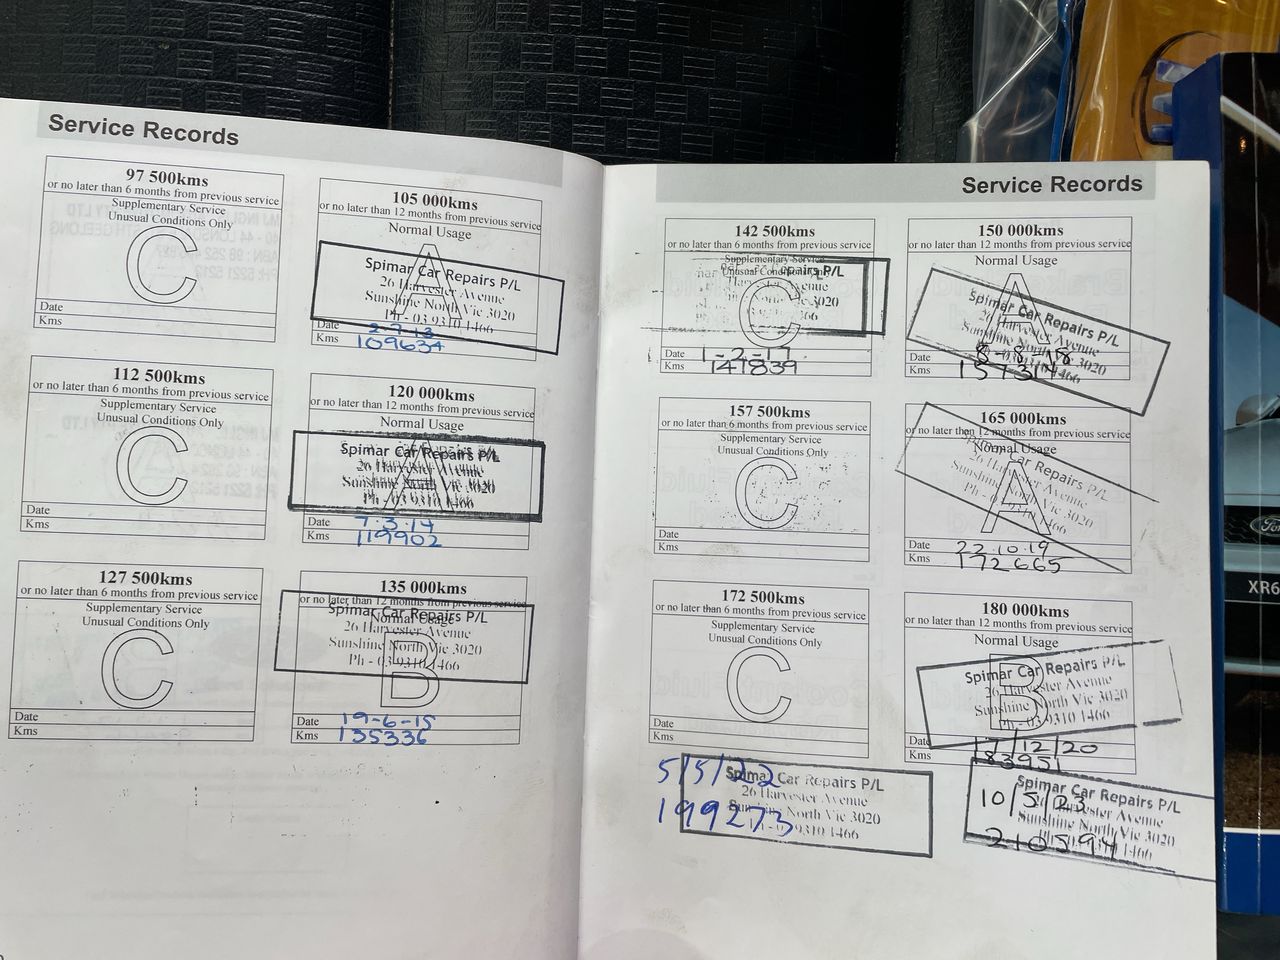 Service Records
97 500kms
or no later than 6 months from previous service
Supplementary Service
Unusual Conditions Only
C
Date
Kms
105 000kms
or no later than 12 months from previous service
Normal Usage
A
Spimar Car Repairs P/L
26 Harvester Avenue
Sunshine North Vic 3020
Ph - 03 9310 1466
Date 2-7-13
Kms 109634
112 500kms
or no later than 6 months from previous service
Supplementary Service
Unusual Conditions Only
C
Date
Kms
120 000kms
or no later than 12 months from previous service
Normal Usage
A
Spimar Car Repairs P/L
26 Harvester Avenue
Sunshine North Vic 3020
Ph - 03 9310 1466
Date 7.3.14
Kms 119902
127 500kms
or no later than 6 months from previous service
Supplementary Service
Unusual Conditions Only
C
Date
Kms
135 000kms
or no later than 12 months from previous service
Normal Usage
B
Spimar Car Repairs P/L
26 Harvester Avenue
Sunshine North Vic 3020
Ph - 03 9310 1466
Date 19-6-15
Kms 135336
Service Records
142 500kms
or no later than 6 months from previous service
Supplementary Service
Unusual Conditions
C
epairs P/L
Harvester Avenue
North 3020
Date 1-2-17
Kms 141839
150 000kms
or no later than 12 months from previous service
Normal Usage
A
Spimar Car Repairs P/L
26 Harvester Avenue
Sunshine North Vic 3020
03 9310 1466
Date 8-8-18
Kms 157314
157 500kms
or no later than 6 months from previous service
Supplementary Service
Unusual Conditions Only
C
Date
Kms
165 000kms
or no later than 12 months from previous service
Normal Usage
A
Spimar Car Repairs P/L
26 Harvester Avenue
Sunshine North Vic 3020
Ph - 03 9310 1466
Date 22.10.19
Kms 172665
172 500kms
or no later than 6 months from previous service
Supplementary Service
Unusual Conditions Only
C
Date
Kms
180 000kms
or no later than 12 months from previous service
Normal Usage
B
Spimar Car Repairs P/L
26 Harvester Avenue
Sunshine North Vic 3020
Ph - 03 9310 1466
Date 17/12/20
Kms 183951
5/5/22
199273
Spimar Car Repairs P/L
26 Harvester Avenue
Sunshine North Vic 3020
9310 1466
10/5/23
210594
Spimar Car Repairs P/L
26 Harvester Avenue
Sunshine North Vic 3020
1466
Ford
XR6